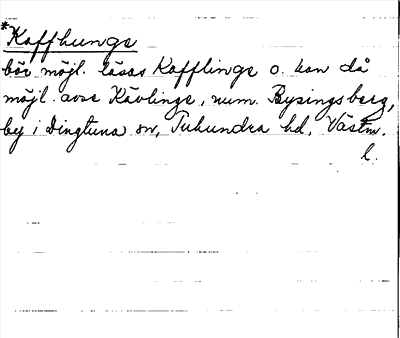 *Kaffhunge
bör möjl. läsas Kafflinge o. kan då
möjl. avse Kävlinge, num. Bysingsberg,
by i Dingtuna sn, Tuhundra hd, Västm.
l.